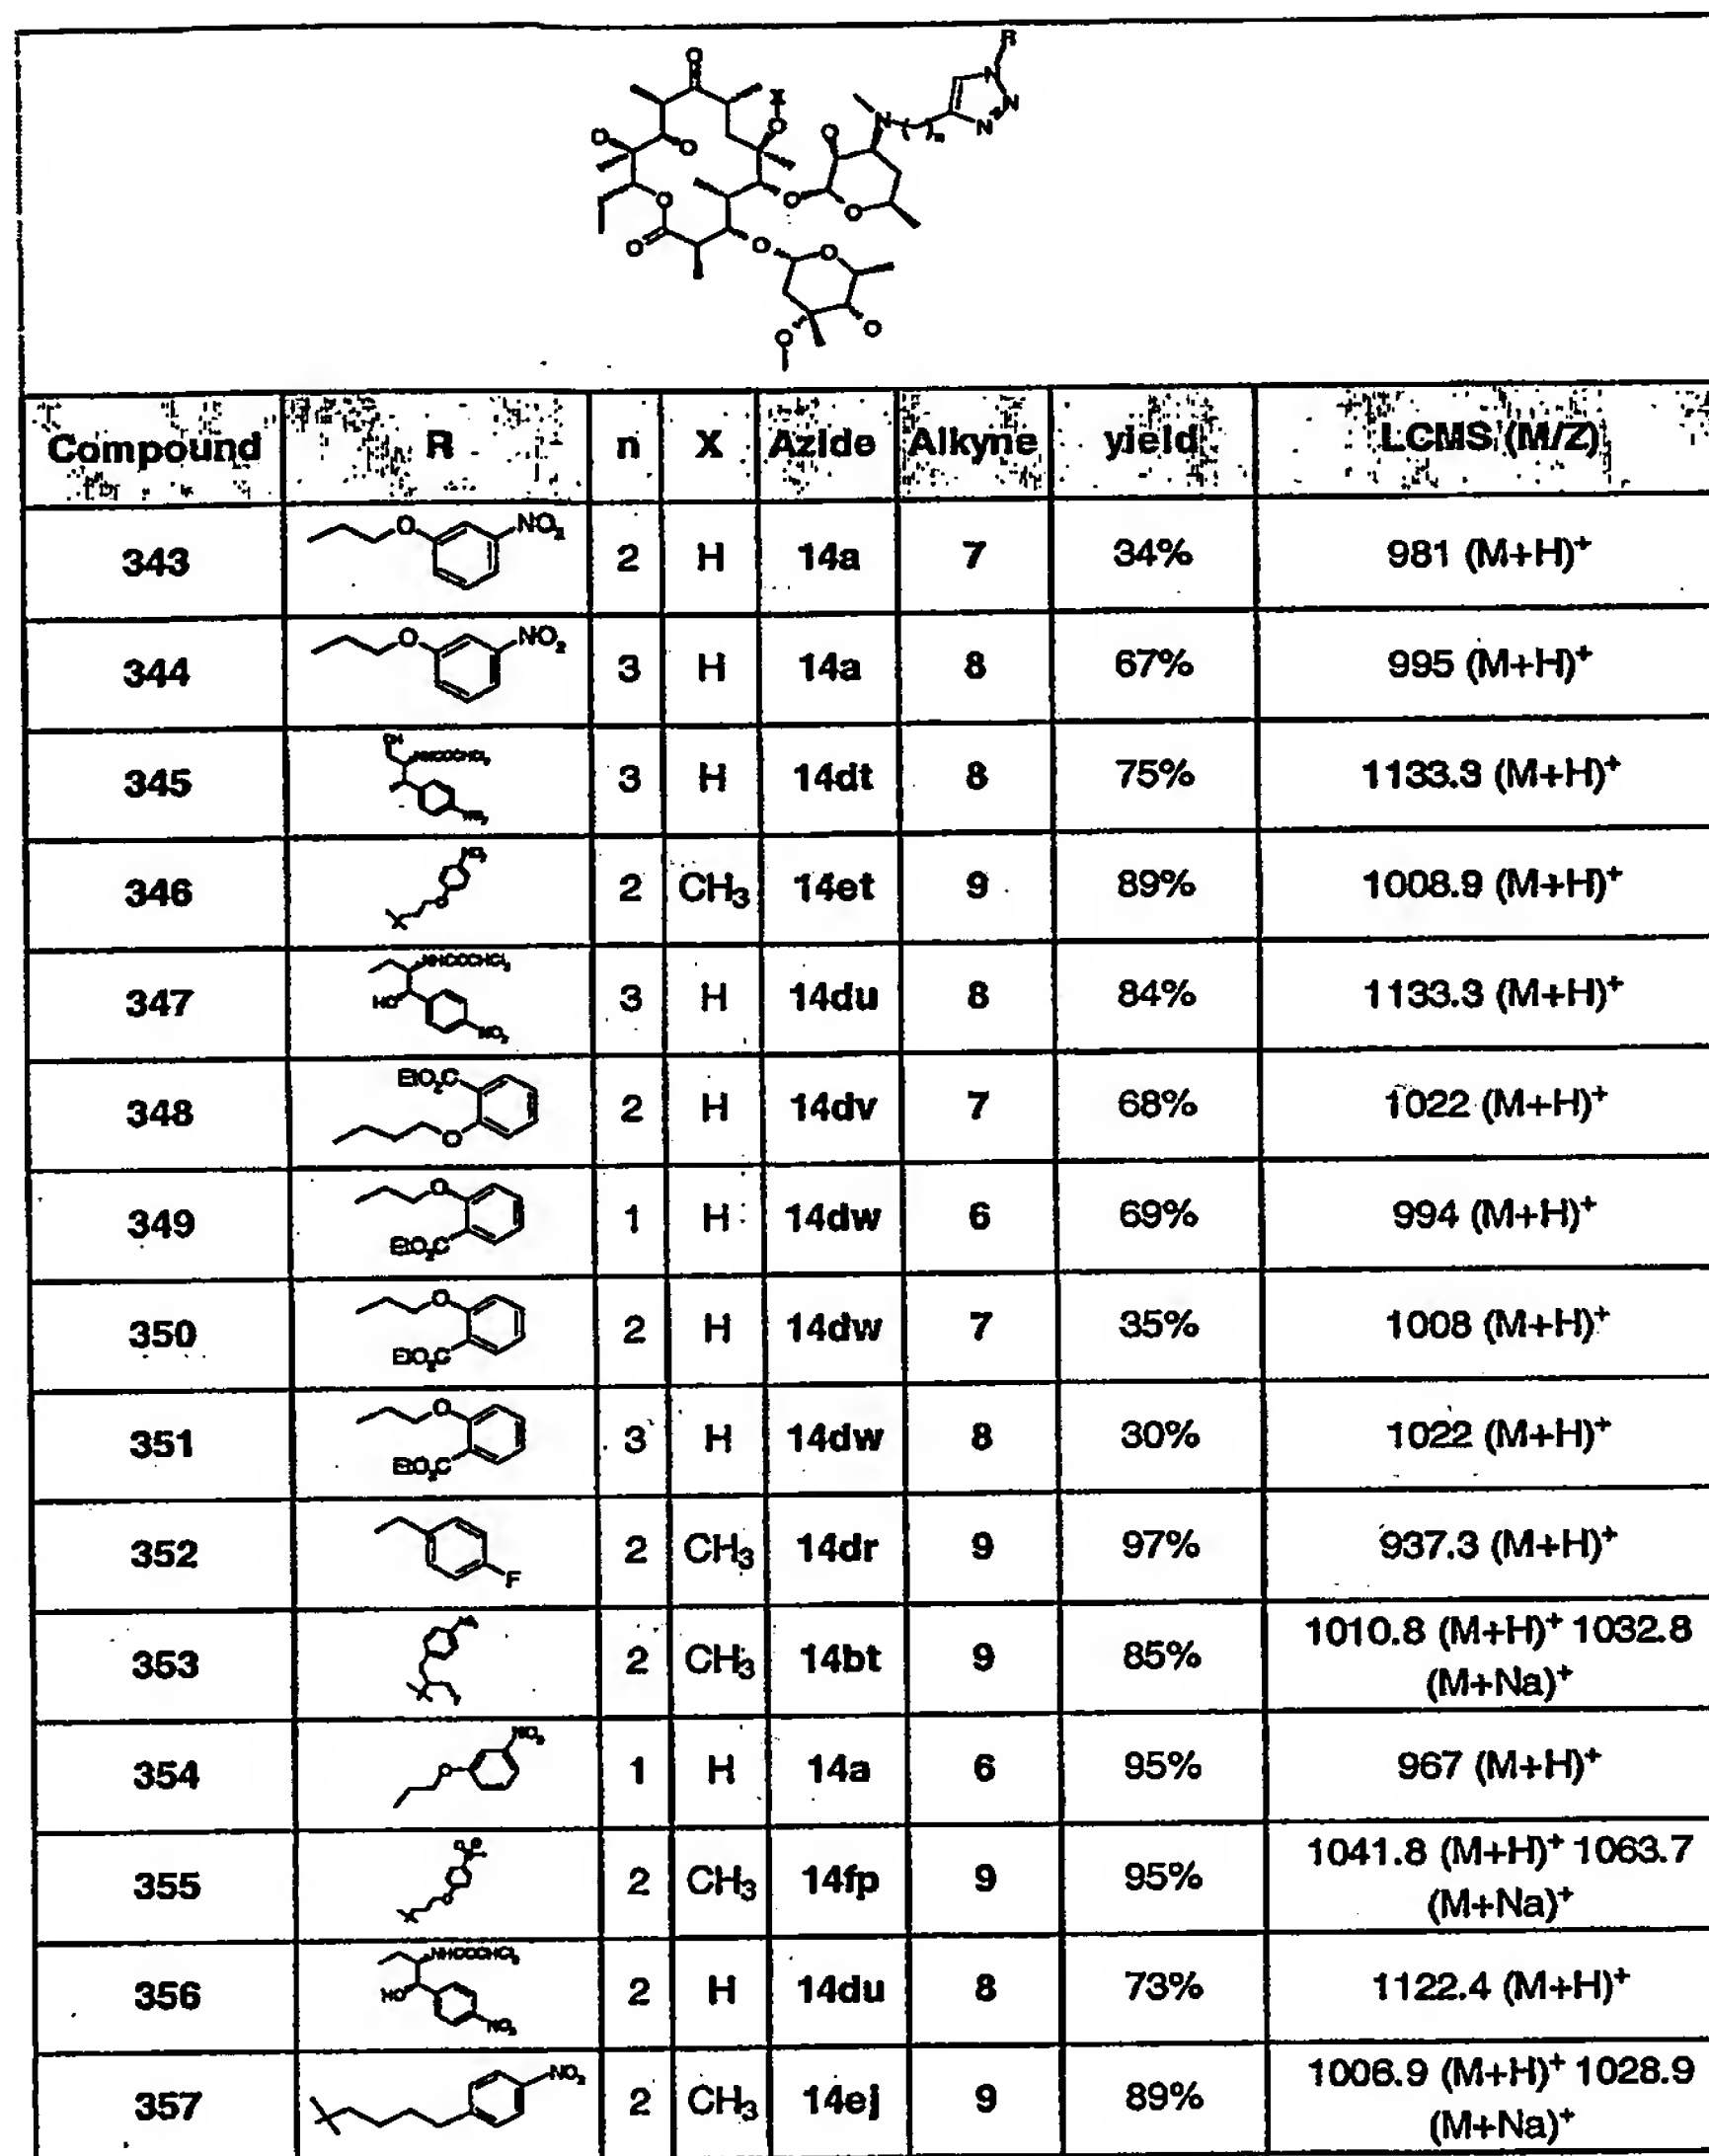 R
O
X
O
N
N
N
N
( )n
O
O
O
O
O
O
O
O
O
O
O
Compound R n X Azide Alkyne yield LCMS (M/Z)
343 O NO2 2 H 14a 7 34% 981 (M+H)+
344 O NO2 3 H 14a 8 67% 995 (M+H)+
OH NHCOCHCl2
345 3 H 14dt 8 75% 1133.3 (M+H)+
NO2
346 2 CH3 14et 9 89% 1008.9 (M+H)+
NHCOCHCl2
347 HO 3 H 14du 8 84% 1133.3 (M+H)+
NO2
EtO2C
348 O 2 H 14dv 7 68% 1022 (M+H)+
O
349 EtO2C 1 H 14dw 6 69% 994 (M+H)+
O
350 EtO2C 2 H 14dw 7 35% 1008 (M+H)+
O
351 EtO2C 3 H 14dw 8 30% 1022 (M+H)+
352 F 2 CH3 14dr 9 97% 937.3 (M+H)+
353 2 CH3 14bt 9 85% 1010.8 (M+H)+ 1032.8
(M+Na)+
NO2
354 O 1 H 14a 6 95% 967 (M+H)+
355 2 CH3 14fp 9 95% 1041.8 (M+H)+ 1063.7
(M+Na)+
NHCOCHCl2
356 HO 2 H 14du 8 73% 1122.4 (M+H)+
NO2
357 NO2 2 CH3 14ej 9 89% 1006.9 (M+H)+ 1028.9
(M+Na)+